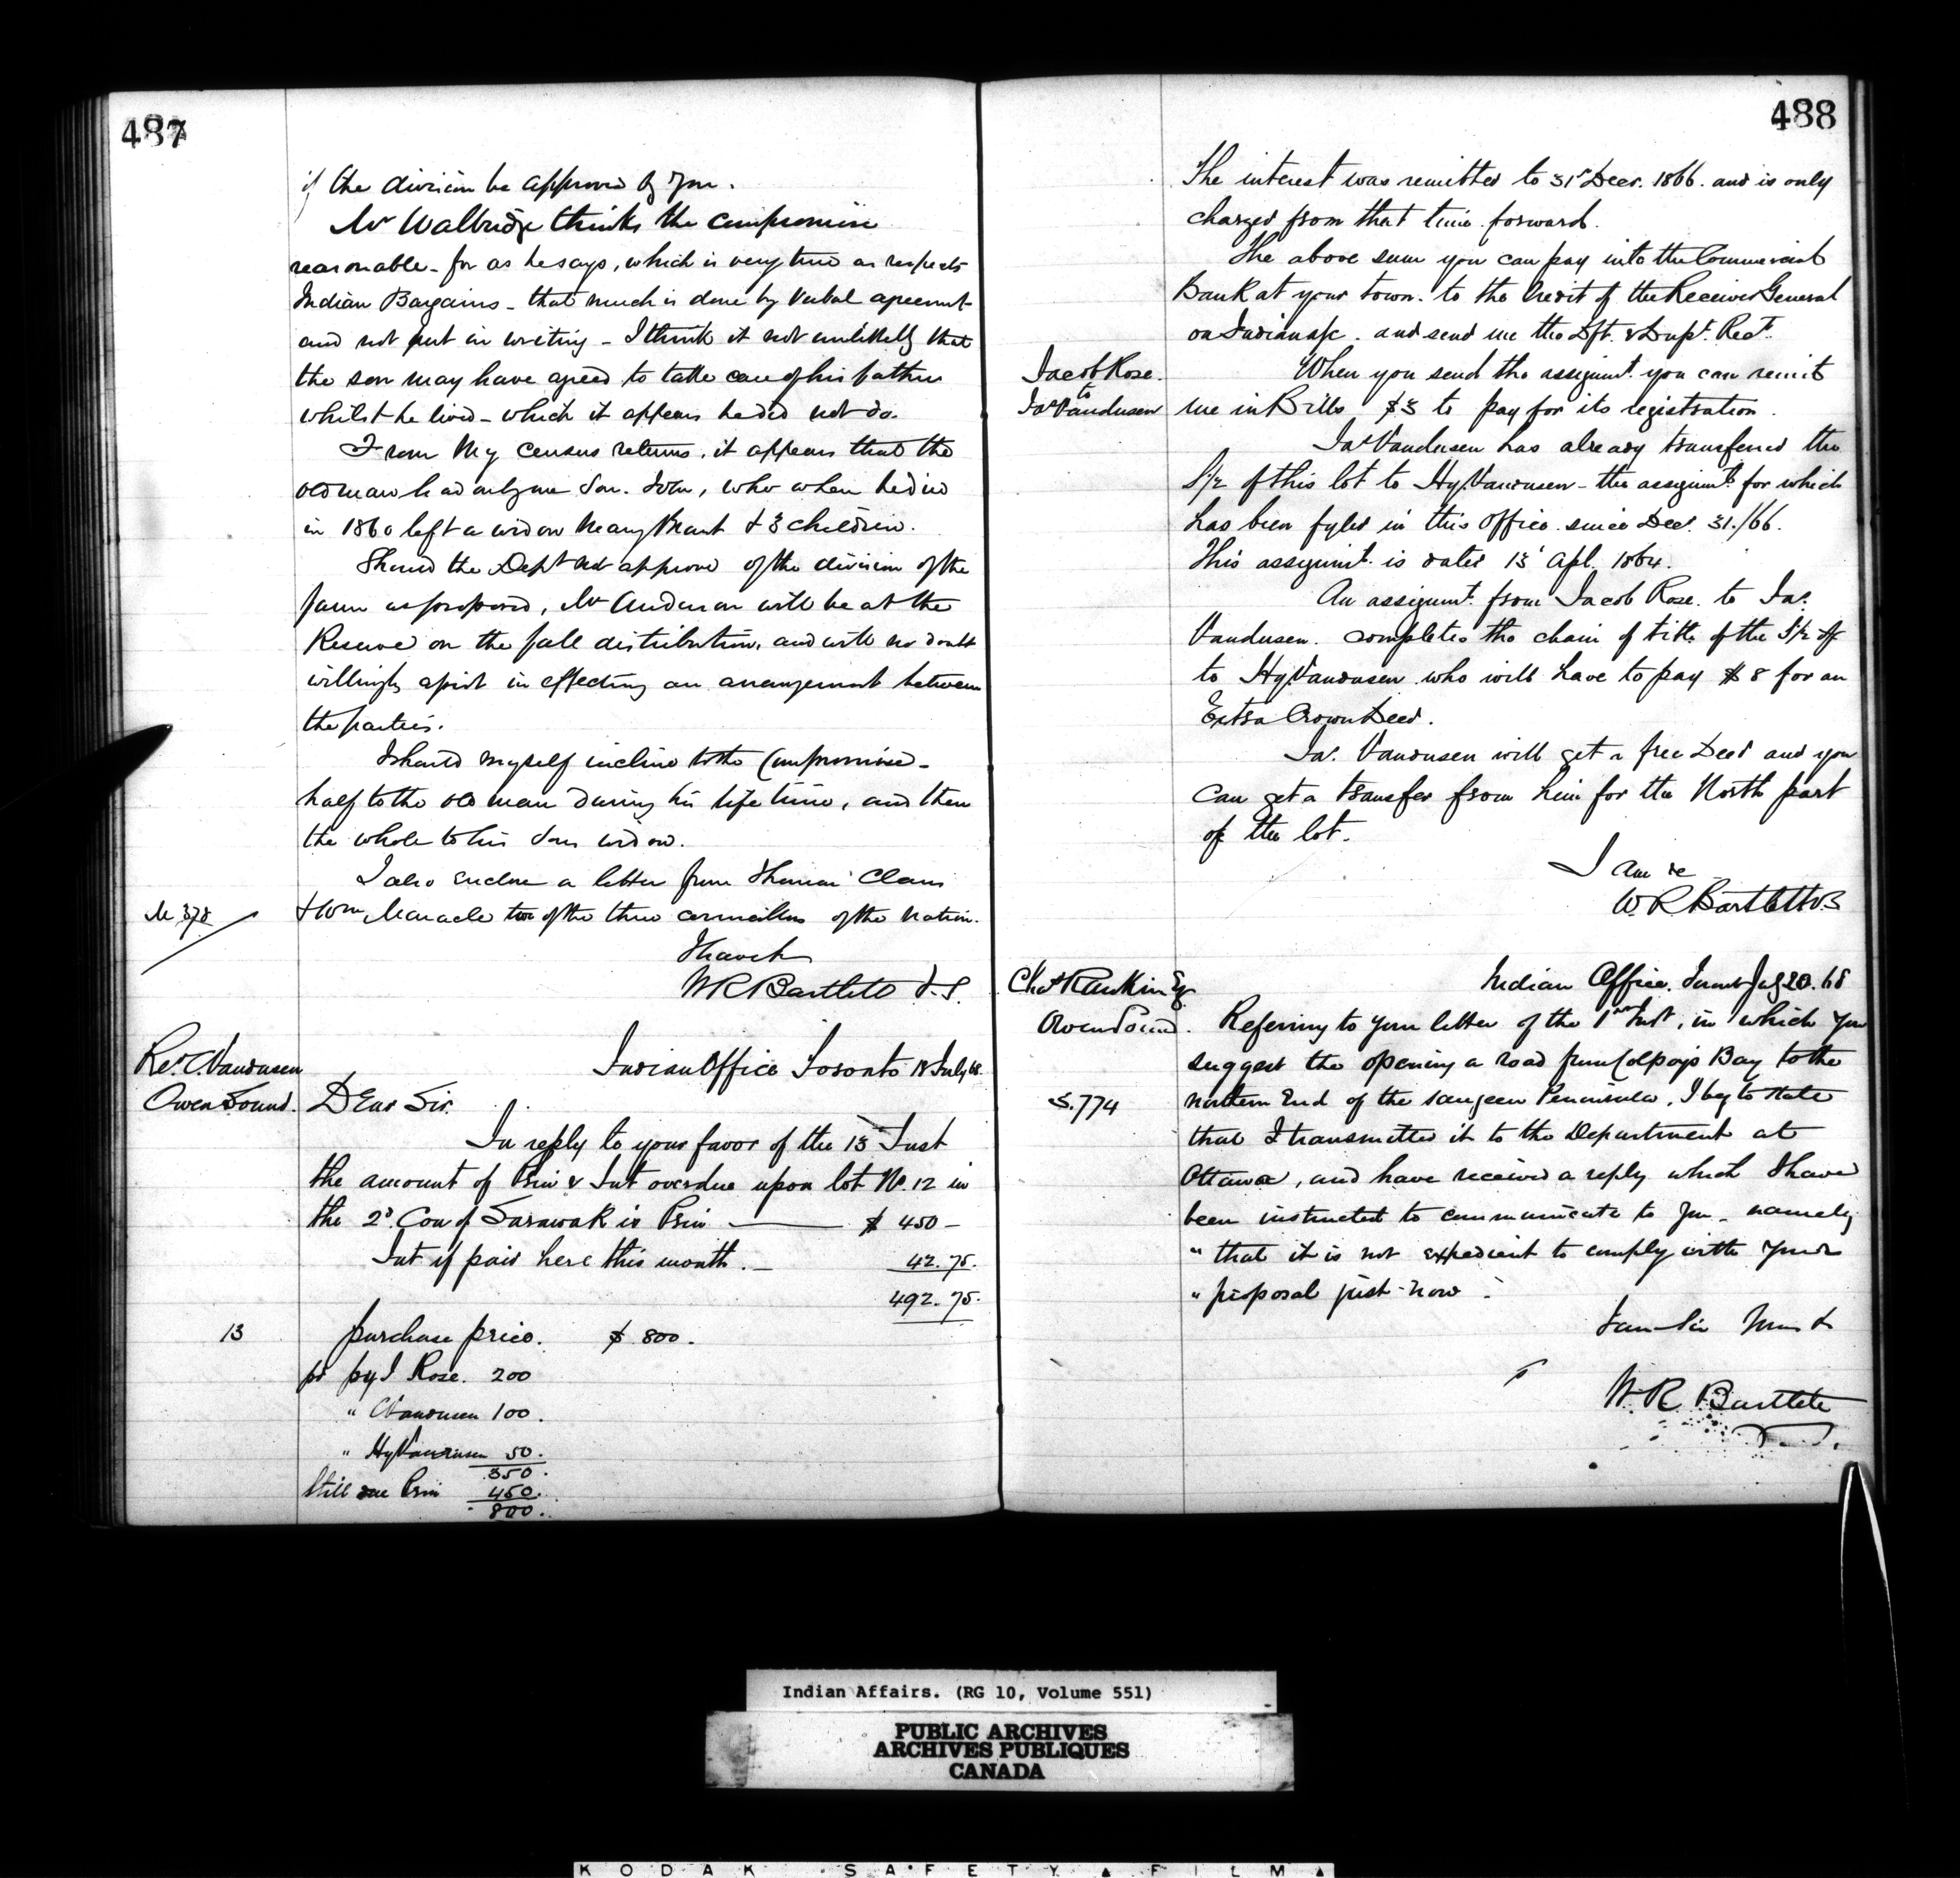 487
if the division be approved by you.
Mr Walbridge thinks the compromise
reasonable - for as he says, which is very true as respects
Indian Bargains - that much is done by Verbal agreement
and not put in writing - I think it not unlikely that
the son may have agreed to take care of his father
whilst he lived - which it appears he did not do.
From My census returns, it appears that the
old man had only one Son. John, who when he died
in 1860 left a widow Mary Brant & 3 children.
Should the Dept not approve of the division of the
farm as proposed, Mr Anderson will be at the
Reserve on the fall distribution, and will no doubt
willingly assist in effecting an arrangement between
the parties.
I should myself incline to the Compromise -
half to the old man during his life time, and then
the whole to his Sons widow.
I also enclose a letter from Thomas Claus
M 378
& Wm Maracle two of the three councillors of the Nation.
I have &
W R Bartlett V.S.
Rev. C. Vandusen
Owen Sound.
Indian Office Toronto 18 July 68
DEar Sir.
In reply to your favor of the 13th Inst
the amount of Prin & Int overdue upon lot No. 12 in
the 2d. Con of Sarawak is Prin — $ 450 -
Int if paid here this month. - 42.75.
492.75.
13
purchase price. $ 800.
pd by J Rose. 200
" C Vandusen 100.
" Hy Vandusen 50.
350.
Still due Prin 450.
800.
488
The interest was remitted to 31st Decr. 1866. and is only
charged from that time forward.
The above sum you can pay into the Commercial
Bank at your town. to the Credit of the Receiver General
on Indian a/c. and send me the Dft. & Dupt. Rect.
Jacob Rose.
to
Jas Vandusen
When you send the assignmt. you can remit
me in Bills $3 to pay for its registration.
Jas Vandusen has already transferred the
S 1/2 of this lot to Hy Vandusen - the assignmt. for which
has been fyled in this office since Decr. 31./66.
This assignmt. is dated 13' Apl. 1864.
An assignmt. from Jacob Rose. to Jas.
Vandusen. completes the chain of title of the S 1/2 of
to Hy Vandusen who will have to pay $8 for an
Extra Crown Deed.
Jas. Vandusen will get a free Deed and you
can get a transfer from him for the North part
of the lot.
I am &c
W. R Bartlett V.S
Chas Rankin Eq
Owen Sound.
Indian Office. Toronto July 20. 68
Referring to your letter of the 1st Inst, in which you
suggest the opening a road from Colpoys Bay to the
S.774
northern End of the Saugeen Peninsula, I beg to state
that I transmitted it to the Department at
Ottawa, and have received a reply which I have
been instructed to communicate to you - namely
" that it is not expedient to comply with your
" proposal just now -
I am Sir Your &
W. R. Bartlett
Indian Affairs. (RG 10, Volume 551)
PUBLIC ARCHIVES
ARCHIVES PUBLIQUES
CANADA
KODAK SAFETY FILM